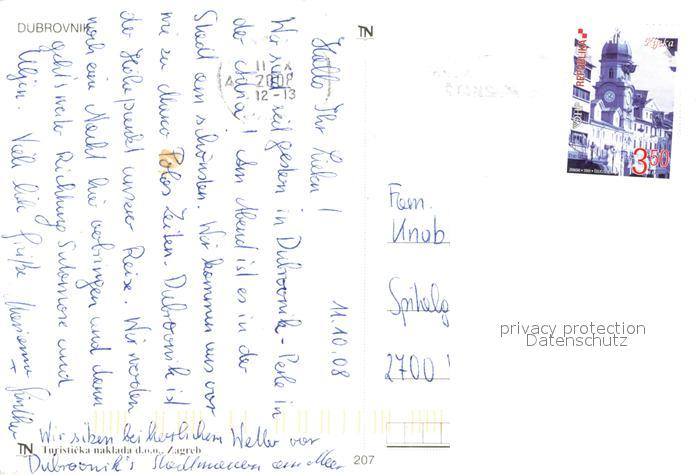 DUBROVNIK
TN
11.10.08
Hallo Ihr Lieben!
Wir sind seit gestern in Dubrovnik - Perle in
der Adria! Am Abend ist es in der
Stadt am schönsten. Wir kommen uns vor
wie zu Marco Polos Zeiten. Dubrovnik ist
der Höhepunkt unserer Reise. Wir werden
noch eine Nacht hier verbringen und dann
geht's weiter Richtung und
Viele liebe Grüße Marianne
+
Wir sitzen bei herrlichem Wetter vor
Dubrovnik's Stadtmauern am Meer
Turistička naklada d.o.o., Zagreb
TN
207
2008
12-13
REPUBLIKA
Rijeka
3,50
Fam.
Knob
Spitalg
2700
privacy protection
Datenschutz